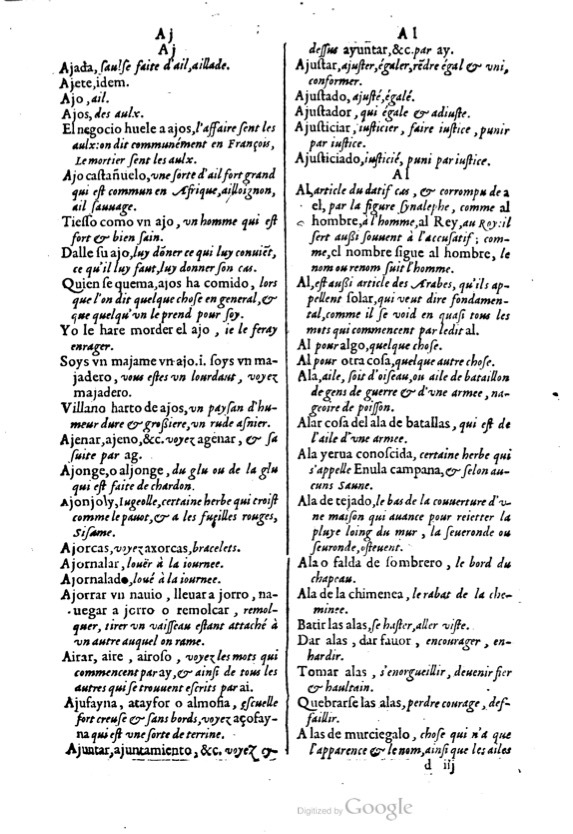 Aj
Aj
Ajada, sausse faite d'ail, aillade.
Ajete, idem.
Ajo, ail.
Ajos, des aulx.
El negocio huele a ajos, l'affaire sent les
aulx: on dit communément en François,
Le mortier sent les aulx.
Ajo castañuelo, vne sorte d'ail fort grand
qui est commun en Afrique, ailloignon,
ail sauuage.
Tiesso como vn ajo, vn homme qui est
fort & bien sain.
Dalle su ajo, luy dõner ce qui luy conuiẽt,
ce qu'il luy faut, luy donner son cas.
Quien se quema, ajos ha comido, lors
que l'on dit quelque chose en general, &
que quelqu'vn le prend pour soy.
Yo le hare morder el ajo, ie le feray
enrager.
Soys vn majame vn ajo. i. soys vn ma-
jadero, vous estes vn lourdaut, voyez
majadero.
Villano harto de ajos, vn paysan d'hu-
meur dure & grossiere, vn rude asnier.
Ajenar, ajeno, &c. voyez agenar, & sa
suite par ag.
Ajonge, o aljonge, du glu ou de la glu
qui est faite de chardon.
Ajonjoly, Iugeolle, certaine herbe qui croist
comme le pauot, & a les fueilles rouges,
Sisame.
Ajorcas, voyez axorcas, bracelets.
Ajornalar, louër à la iournee.
Ajornalado, loué à la iournee.
Ajorrar vn nauio, lleuar a jorro, na-
uegar a jorro o remolcar, remol-
quer, tirer vn vaisseau estant attaché à
vn autre auquel on rame.
Airar, aire, airoso, voyez les mots qui
commencent par ay, & ainsi de tous les
autres qui se trouuent escrits par ai.
Ajufayna, atayfor o almofia, escuelle
fort creuse & sans bords, voyez açofay-
na qui est vne sorte de terrine.
Ajuntar, ajuntamiento, &c. voyez &
Al
dessus ayuntar, &c. par ay.
Ajustar, ajuster, égaler, rẽdre égal & vni,
conformer.
Ajustado, ajusté, égalé.
Ajustador, qui égale & adiuste.
Ajusticiar, iusticier, faire iustice, punir
par iustice.
Ajusticiado, iusticié, puni par iustice.
Al
Al, article du datif cas, & corrompu de a
el, par la figure synalephe, comme al
hombre, à l'homme, al Rey, au Roy: il
sert aussi souuent à l'accusatif; com-
me, el nombre sigue al hombre, le
nom ou renom suit l'homme.
Al, est aussi article des Arabes, qu'ils ap-
pellent solar, qui veut dire fondamen-
tal, comme il se void en quasi tous les
mots qui commencent par ledit al.
Al pour algo, quelque chose.
Al pour otra cosa, quelque autre chose.
Ala, aile, soit d'oiseau, ou aile de bataillon
de gens de guerre & d'vne armee, na-
geoire de poisson.
Alar cosa del ala de batallas, qui est de
l'aile d'vne armee.
Ala yerua conoscida, certaine herbe qui
s'appelle Enula campana, & selon au-
cuns Saune.
Ala de tejado, le bas de la couuerture d'v-
ne maison qui auance pour reietter la
pluye loing du mur, la seueronde ou
seuronde, osteuent.
Ala o falda de sombrero, le bord du
chapeau.
Ala de la chimenea, le rabat de la che-
minee.
Batir las alas, se haster, aller viste.
Dar alas, dar fauor, encourager, en-
hardir.
Tomar alas, s'enorgueillir, deuenir fier
& haultain.
Quebrarse las alas, perdre courage, def-
faillir.
Alas de murciegalo, chose qui n'a que
l'apparence & le nom, ainsi que les ailes
d iij
Digitized by Google